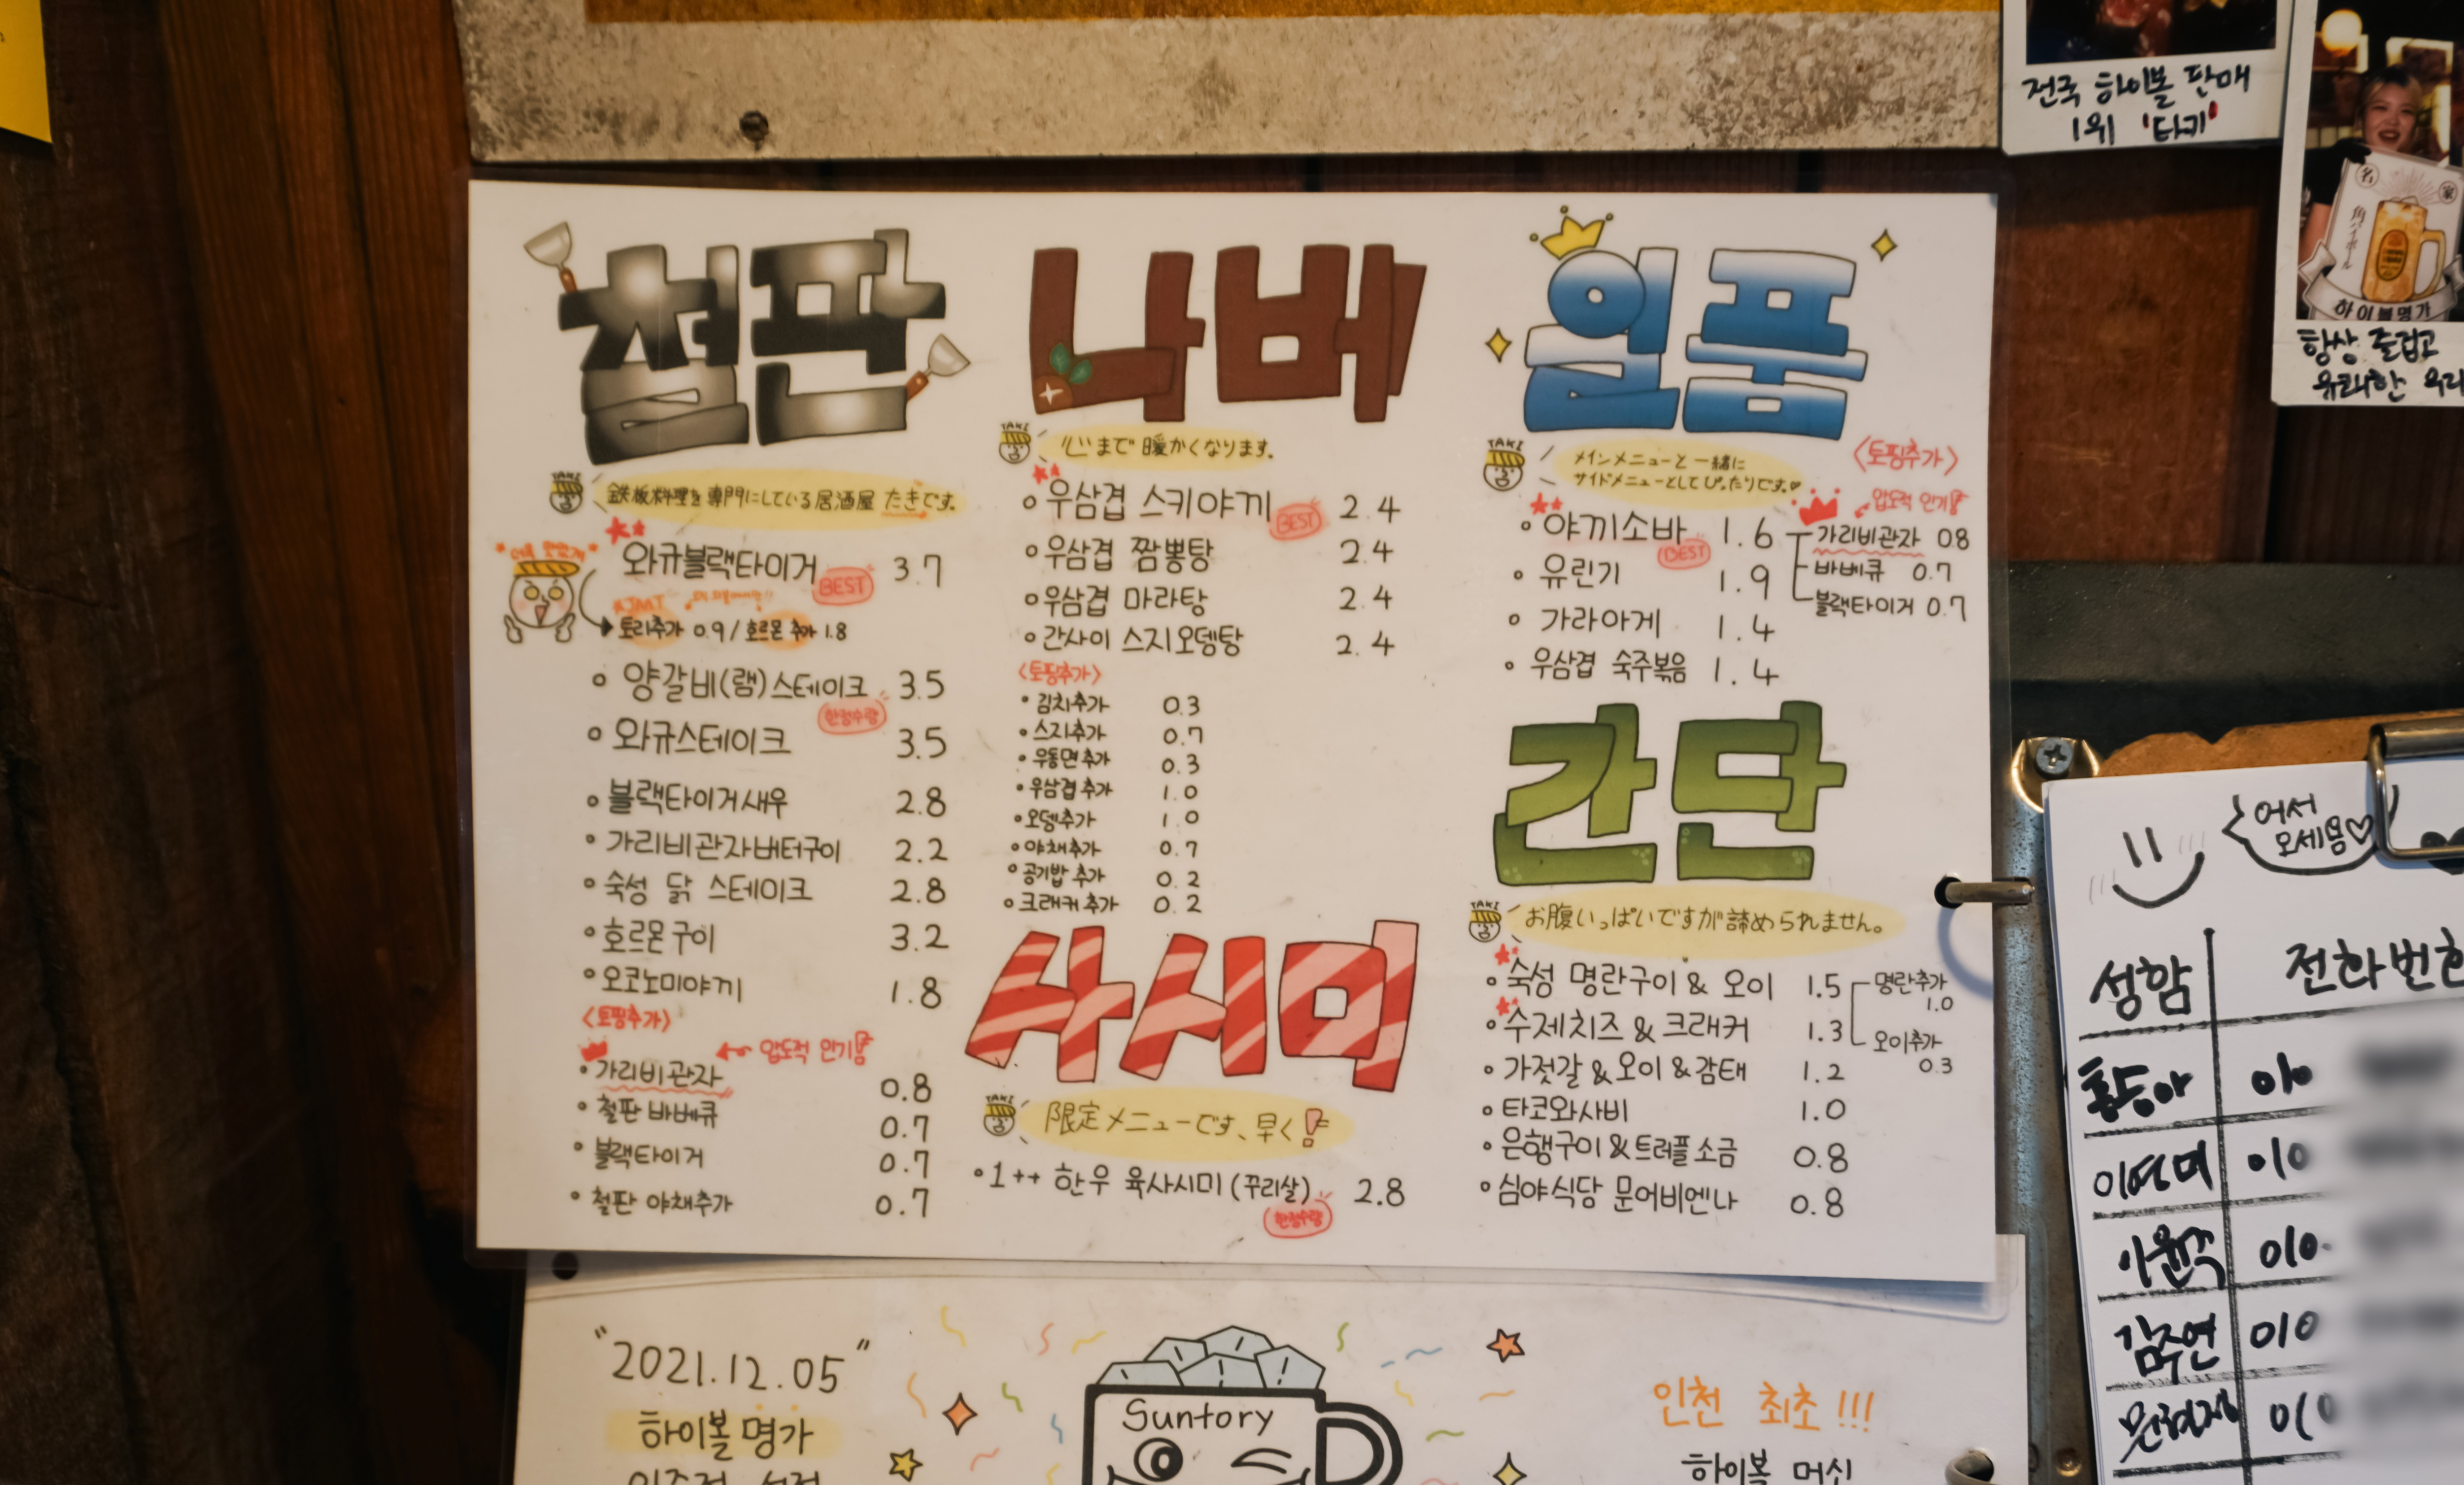 전국 하이볼 판매
1위 '타키'
名家
角ハイボール
하이볼명가
항상 즐겁고
유쾌한 우리
철판
TAKI
鉄板料理を専門にしている居酒屋 たきです。
와규블랙타이거 BEST 3.7
토리추가 0.9 / 호르몬 추가 1.8
양갈비(램)스테이크 3.5
한정수량
와규스테이크 3.5
블랙타이거새우 2.8
가리비관자버터구이 2.2
숙성 닭 스테이크 2.8
호르몬구이 3.2
오코노미야끼 1.8
<토핑추가>
압도적 인기!
가리비관자 0.8
철판 바베큐 0.7
블랙타이거 0.7
철판 야채추가 0.7
나베
TAKI
心まで暖かくなります。
우삼겹 스키야끼 BEST 2.4
우삼겹 짬뽕탕 2.4
우삼겹 마라탕 2.4
간사이 스지오뎅탕 2.4
<토핑추가>
김치추가 0.3
스지추가 0.7
우동면추가 0.3
우삼겹추가 1.0
오뎅추가 1.0
야채추가 0.7
공기밥 추가 0.2
크래커 추가 0.2
사시미
TAKI
限定メニューです、早く!
1++ 한우 육사시미 (꾸리살) 2.8
한정수량
일품
TAKI
メインメニューと一緒に
サイドメニューとしてぴったりです。
<토핑추가>
압도적 인기!
야끼소바 BEST 1.6
가리비관자 0.8
바베큐 0.7
블랙타이거 0.7
유린기 1.9
가라아게 1.4
우삼겹 숙주볶음 1.4
간단
TAKI
お腹いっぱいですが諦められません。
숙성 명란구이 & 오이 1.5
명란추가 1.0
수제치즈 & 크래커 1.3
오이추가 0.3
가젓갈 & 오이 & 감태 1.2
타코와사비 1.0
은행구이 & 트러플소금 0.8
심야식당 문어비엔나 0.8
"2021.12.05"
하이볼 명가
Suntory
인천 최초!!!
하이볼 머신
어서
오세용♡
성함 전화번호
홍동아 010
이연미 010
010
김주연 010
010